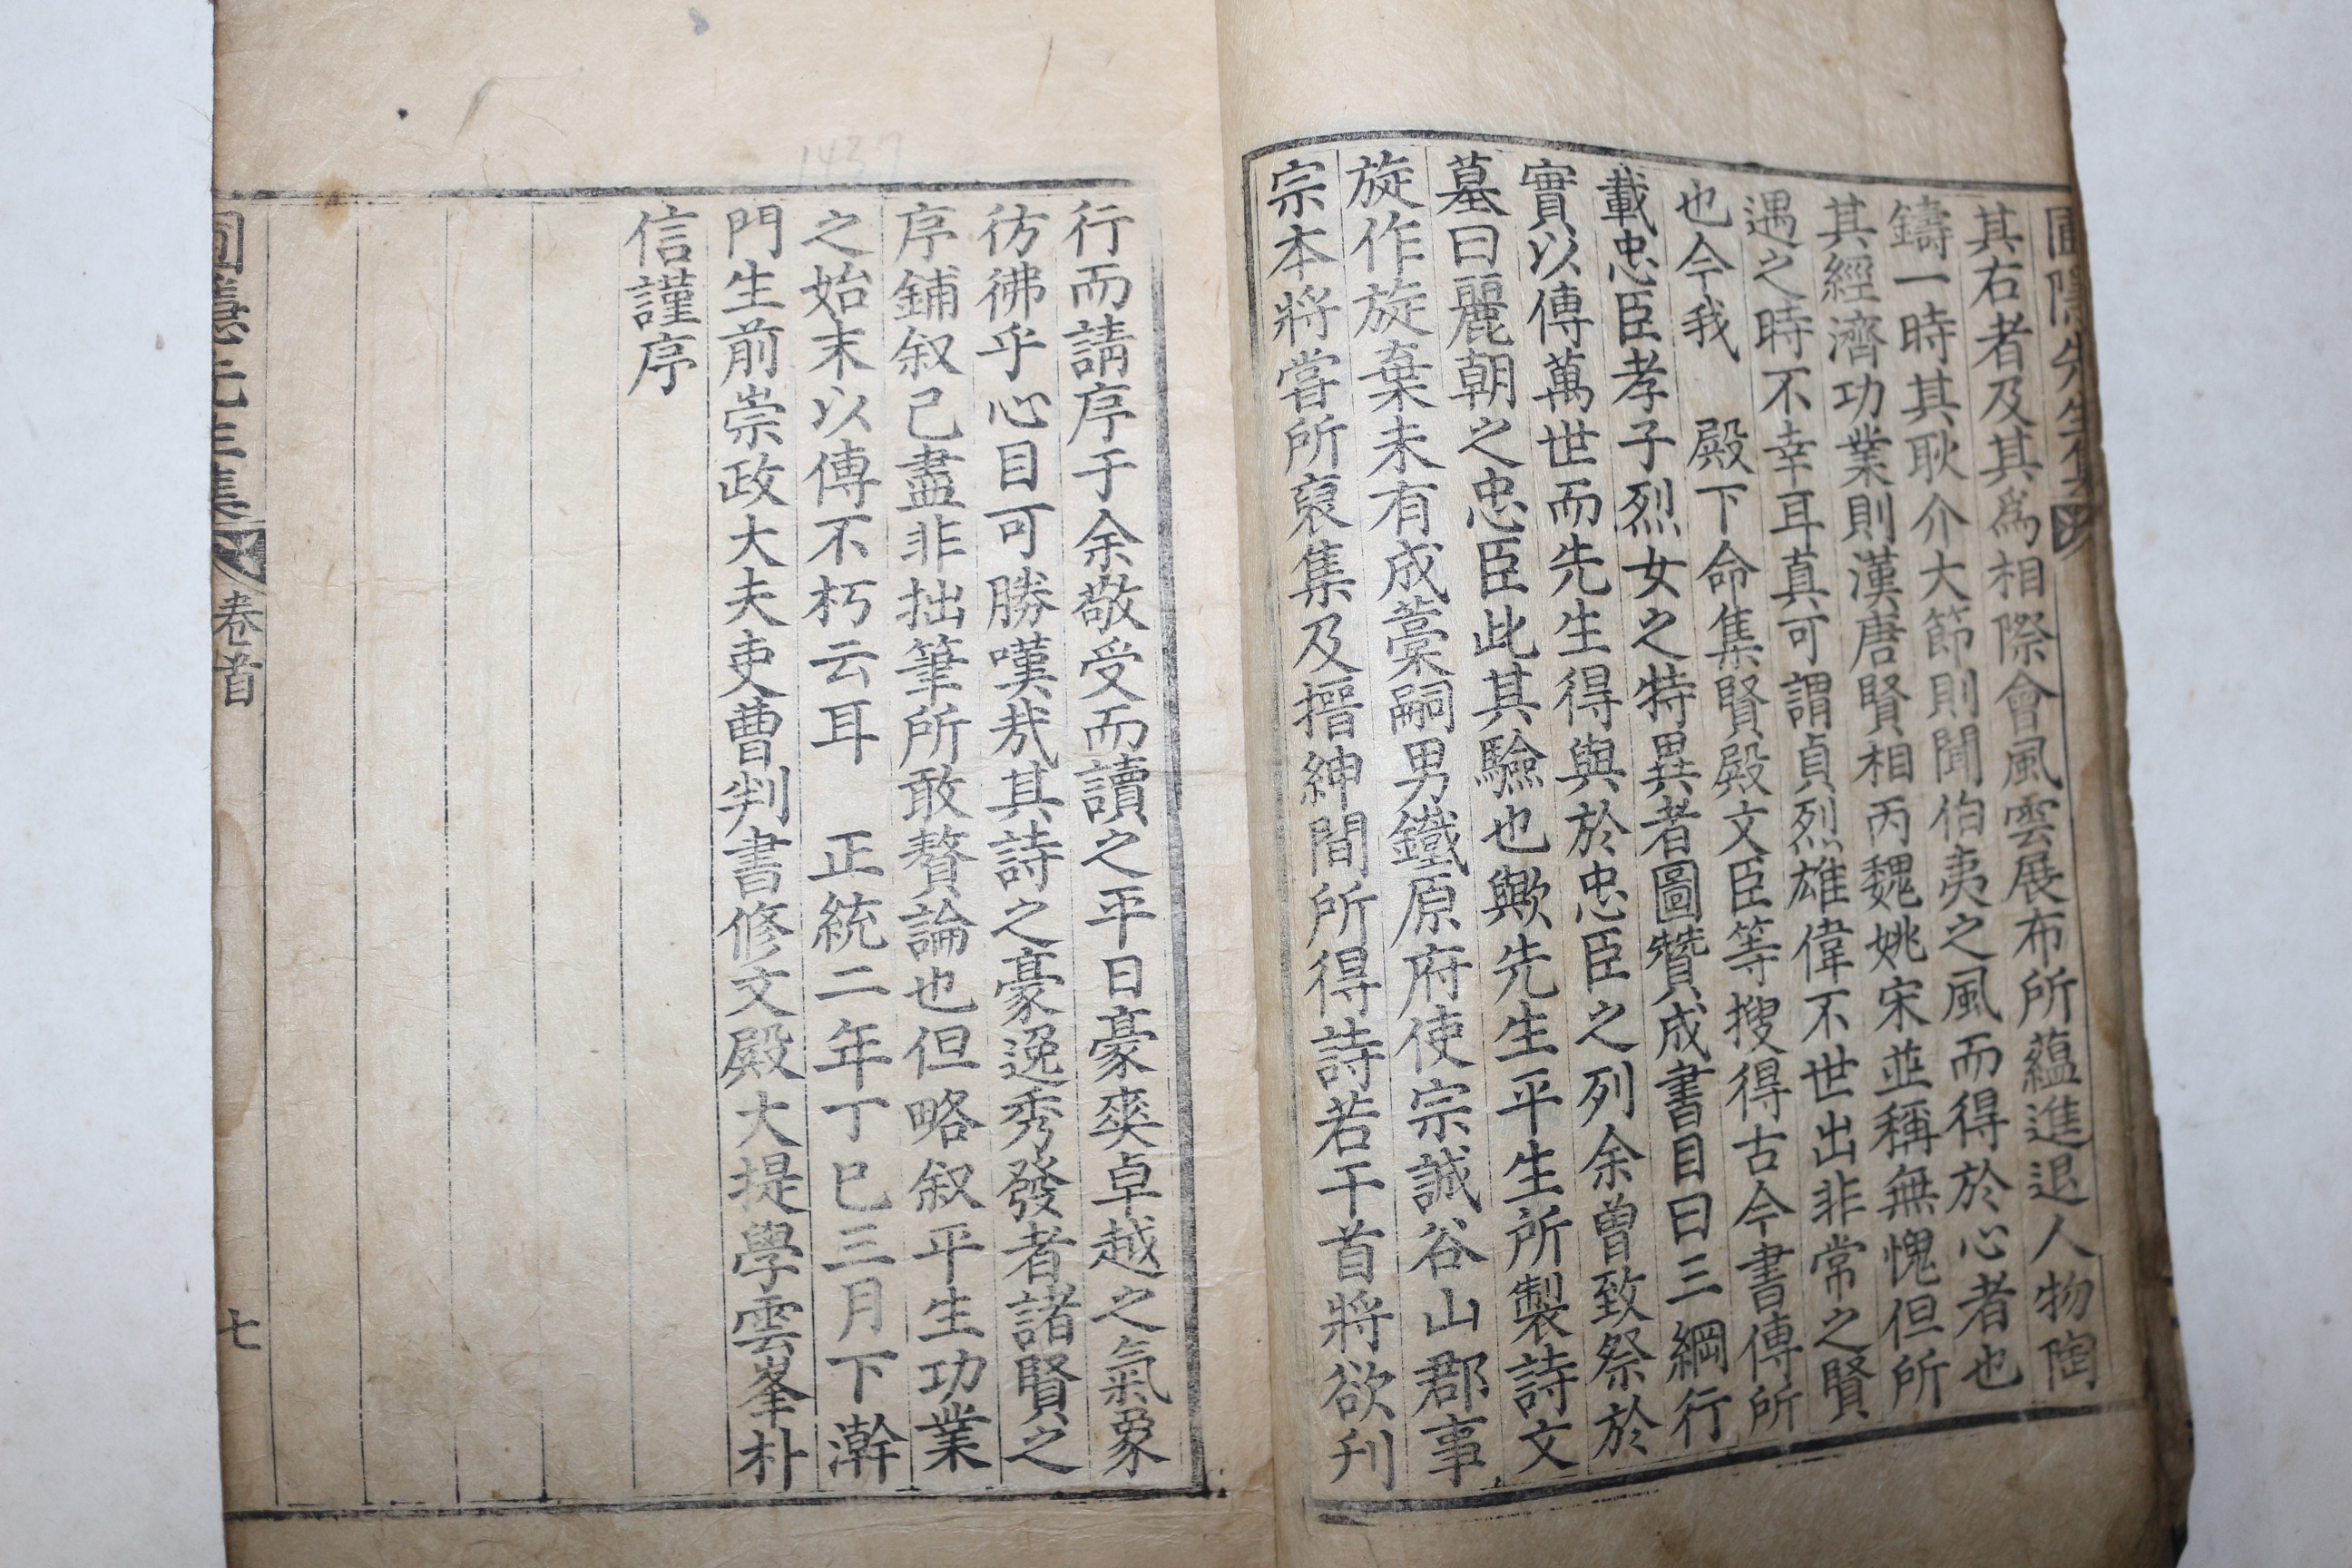 圃隱先生集
其右者及其爲相際會風雲展布所蘊進退人物陶
鑄一時其耿介大節則聞伯夷之風而得於心者也
其經濟功業則漢唐賢相丙魏姚宋並稱無愧但所
遇之時不幸耳真可謂貞烈雄偉不世出非常之賢
也今我 殿下命集賢殿文臣等搜得古今書傳所
載忠臣孝子烈女之特異者圖贊成書目曰三綱行
實以傳萬世而先生得與於忠臣之列余曾致祭於
墓曰麗朝之忠臣此其驗也歟先生平生所製詩文
旋作旋棄未有成藁嗣男鐵原府使宗誠谷山郡事
宗本將嘗所裒集及搢紳間所得詩若干首將欲刊
行而請序于余敬受而讀之平日豪爽卓越之氣象
彷彿乎心目可勝嘆哉其詩之豪逸秀發者諸賢之
序鋪叙已盡非拙筆所敢贅論也但略叙平生功業
之始末以傳不朽云耳 正統二年丁巳三月下澣
門生前崇政大夫吏曹判書修文殿大提學雲峯朴
信謹序
圃隱先生集 卷首 七
1437